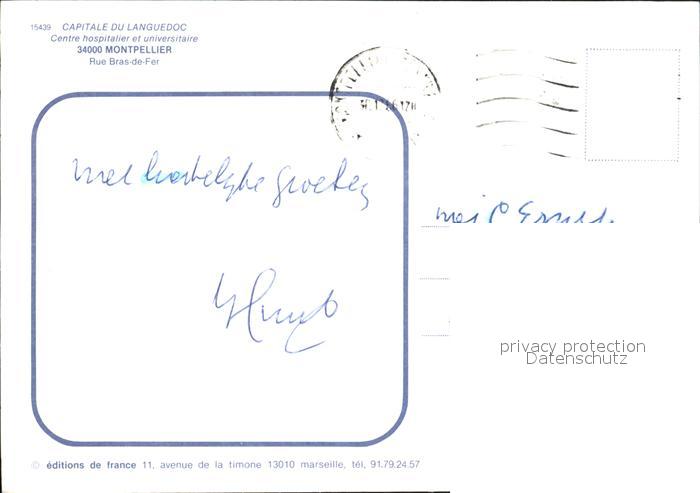 15439 CAPITALE DU LANGUEDOC
Centre hospitalier et universitaire
34000 MONTPELLIER
Rue Bras-de-Fer
met hartelijke groeten
privacy protection
Datenschutz
© éditions de france 11, avenue de la timone 13010 marseille, tél, 91.79.24.57